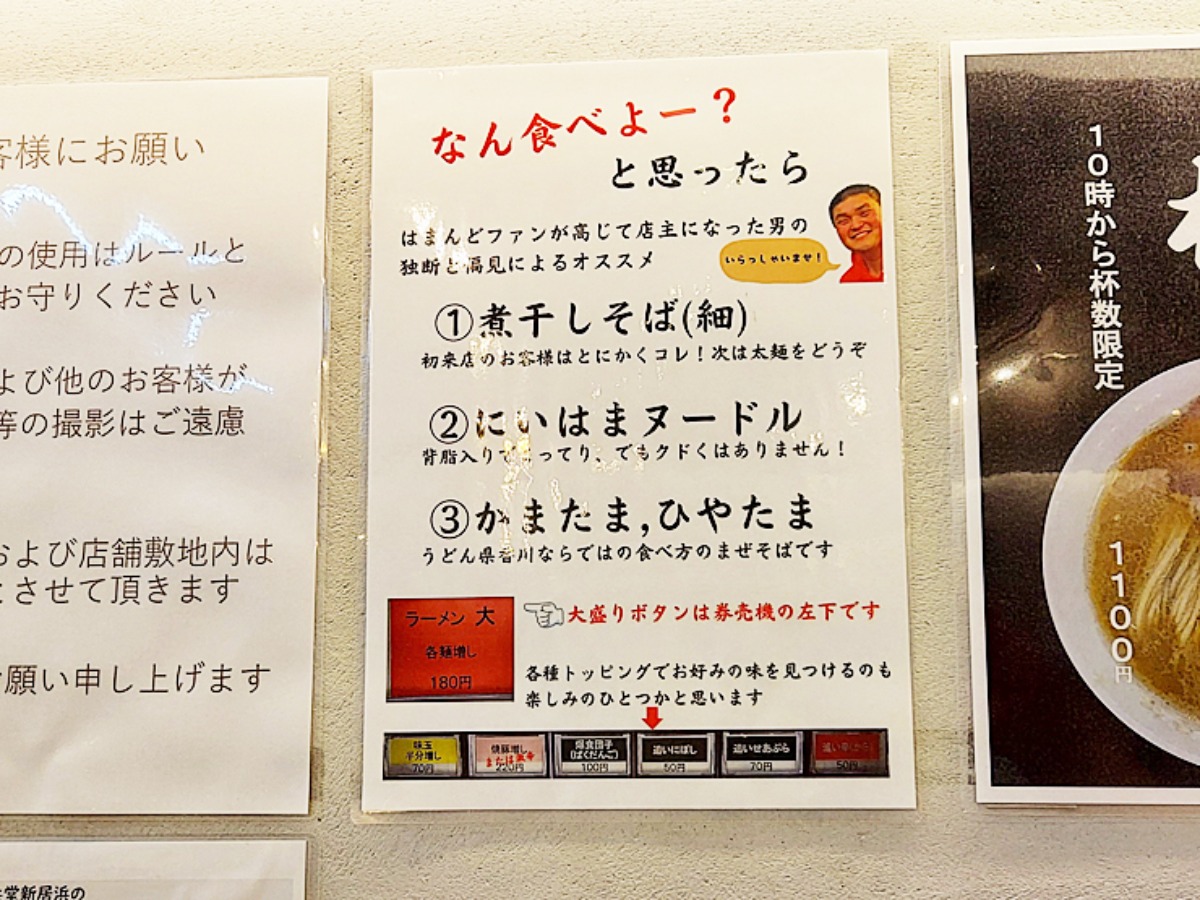 客様にお願い
の使用はルールと
お守りください
よび他のお客様が
等の撮影はご遠慮
および店舗敷地内は
とさせて頂きます
お願い申し上げます
堂新居浜の
なん食べよー？
と思ったら
はまんどファンが高じて店主になった男の
独断と偏見によるオススメ
いらっしゃいませ！
①煮干しそば(細)
初来店のお客様はとにかくコレ！次は太麺をどうぞ
②にいはまヌードル
背脂入りでこってり、でもクドくはありません！
③かまたま,ひやたま
うどん県香川ならではの食べ方のまぜそばです
ラーメン 大
各麺増し
180円
大盛りボタンは券売機の左下です
各種トッピングでお好みの味を見つけるのも
楽しみのひとつかと思います
味玉
半分増し
70円
焼豚増し
または激辛
220円
爆食団子
(ばくだんご)
100円
追いにぼし
50円
追いせあぶら
70円
追い辛(から)
50円
10時から杯数限定
1100円